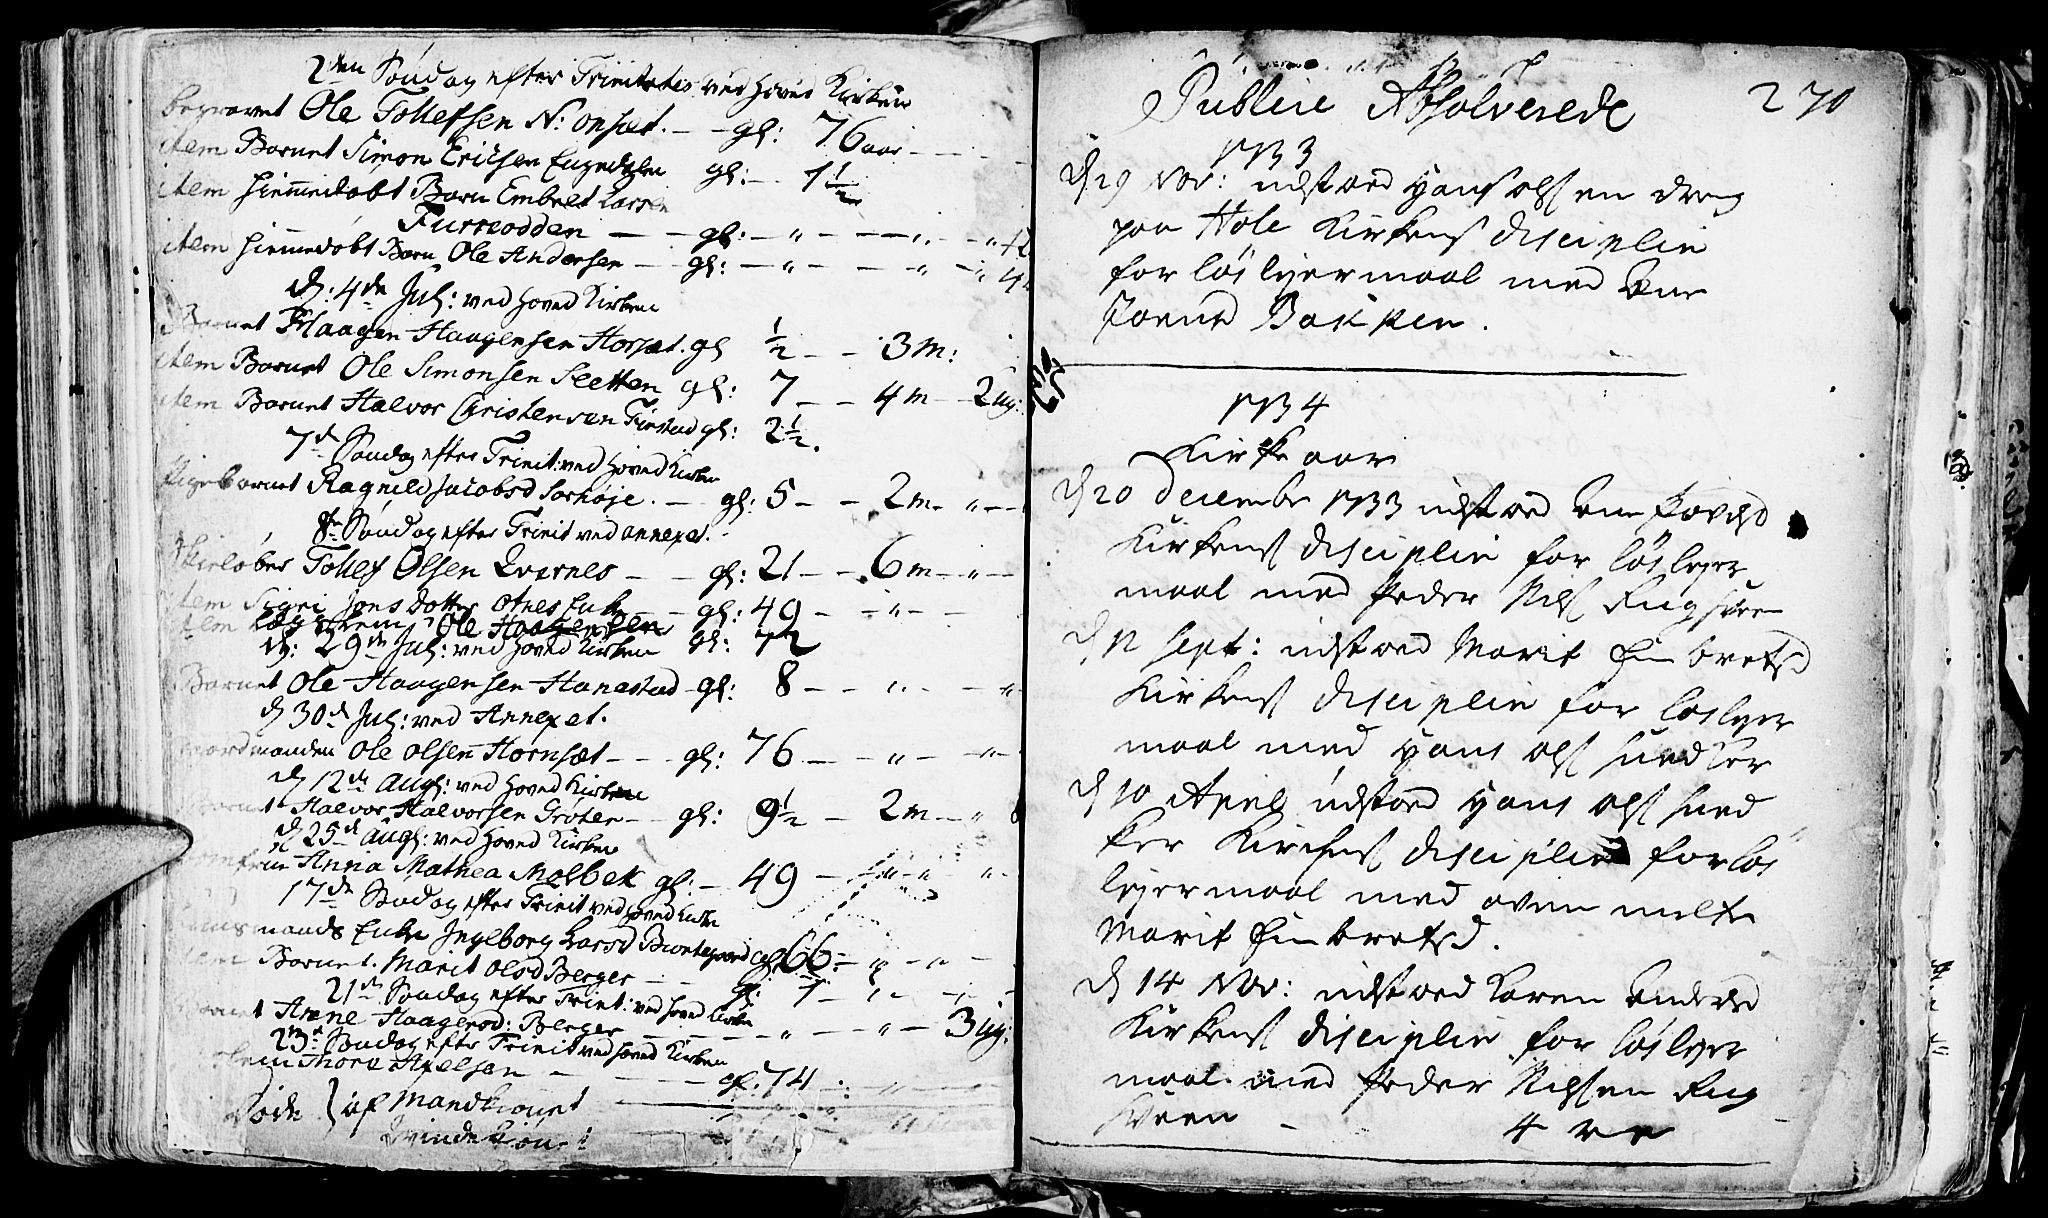 2den Søndag efter Trinitatis ved Hoved Kirken
begravet Ole Tollefsen N: onset. - - gl: 76 aar - - -
item Barnet Simon Ericksen Engedahlen gl: - 1 1/2
item hiemmedøbt Barn Embret Larsen
Furrsodden - - gl: - " - - - " - "
item hiemmedøbt Barn Ole Andersen - - gl: - " - - " - " 4
d: 4de Jul: ved Hoved Kirken
Barnet Haagen Haagensen Horset. gl 1/2 - - 3 m:
item Barnet Ole Simonsen Sletten gl: 7 - - 4 m - 2 ug:
item Barnet Halvor Christensen Finstad gl: 2 1/2.
7de Søndag efter Trinit: ved Hoved Kirken
Pigebarnet Ragnild Jacobsd Sorhøje. - gl: 5 - - 2 m - " -
8de Søndag efter Trinit ved annexet.
Skieløber Tollef Olsen Qvernes - - gl: 21 - - 6 m - " -
item Sigri Jonsdotter Otnes Enke - - gl: 49 - - " -
item Ole Haagensen
d: 29de Jul: ved Hoved Kirken gl: 72
Barnet Ole Haagensen Hanestad - gl: 8 - - " - - "
d 30de Jul: ved Annexet.
Ole Olsen Hornset - - - gl: 76 - - " - "
d 12de Aug: ved Hoved Kirken
Barnet Halvor Halvorsen Grøten - - gl: 9 1/2 - 2 m - "
d 25de Aug: ved Hoved Kirken
Anna Mathea Molbek gl: - 49 - " - "
17de Søndag efter Trinit ved Hoved Kirke
Huusmands Enke Ingeborg Larsd gl: 66 - " - " -
item Barnet. Marit Olsd Berger - - gl: 1 - " -
21de Søndag efter Trinit: ved Hoved Kirken
Barnet Arne Haagensd: Berger - - - " - " - 3 ug:
23de Søndag efter Trinit ved Hoved Kirken
Thore Axelsen - - - - gl: 74 - : "
Døde } af Mandkiønet
Qvindekiønet
Publice Absolverede 270
1733
d 29 Nov: udstod Hans Olsen dreng
paa Hole Kirkens disciplin
for løslejermaal med Ane
Bakken.
1734
Kirke aar
d 20 December 1733 udstod Ane
Kirkens disciplin for løslejer
maal med Peder Nils
d 12 Sept: udstod Marit Embretsd
Kirkens disciplin for løslejer
maal med Hans Ols Sned ker
d 10 April udstod Hans Ols Sned
ker Kirchens disciplin for løs
lejermaal med oven melte
Marit Embretsd.
d 14 Nov: udstod Karen
Kirkens disciplin for løslejer
maal med Peder Nilsen Rug
sveen - 4